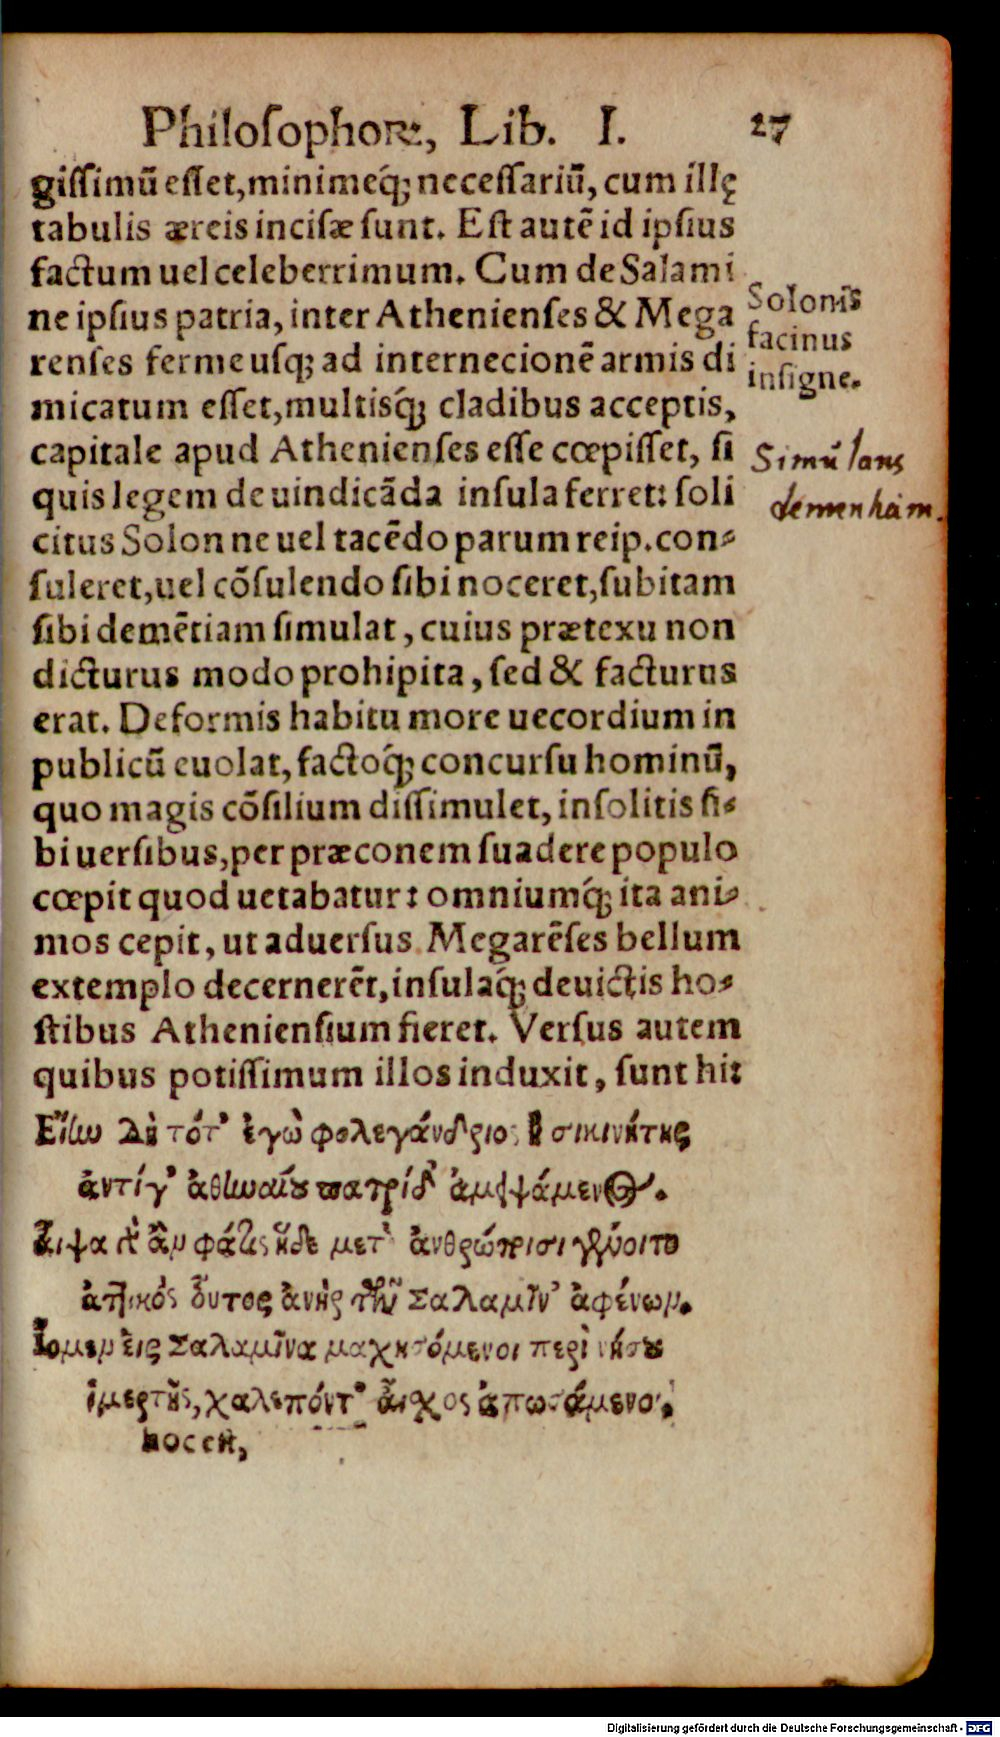 Philosophoꝝ, Lib. I. 27
gissimũ esset, minimeq́ꝫ necessariũ, cum illę
tabulis æreis incisæ sunt. Est autẽ id ipsius
factum uel celeberrimum. Cum de Salami
ne ipsius patria, inter Athenienses & Mega
renses ferme usqꝫ ad internecionẽ armis di
micatum esset, multisq́ꝫ cladibus acceptis,
capitale apud Athenienses esse cœpisset, si
quis legem de uindicãda insula ferret: soli
citus Solon ne uel tacẽdo parum reip. con-
suleret, uel cõsulendo sibi noceret, subitam
sibi demẽtiam simulat, cuius prætexu non
dicturus modo prohipita, sed & facturus
erat. Deformis habitu more uecordium in
publicũ euolat, factoq́ꝫ concursu hominũ,
quo magis cõsilium dissimulet, insolitis si-
bi uersibus, per præconem suadere populo
cœpit quod uetabatur: omniumq́ꝫ ita ani-
mos cepit, ut aduersus Megarẽses bellum
extemplo decernerẽt, insulaq́ꝫ deuictis ho-
stibus Atheniensium fieret. Versus autem
quibus potissimum illos induxit, sunt hi:
Εἴην δὴ τότ' ἐγὼ φολεγάνδριος ἢ σικινήτης
ἀντίγ' ἀθηναίου πατρίδ' ἀμειψάμενος.
Αἶψα γὰρ ἂν φάτις ἥδε μετ' ἀνθρώποισι γένοιτο
ἀττικὸς οὗτος ἀνὴρ τῶν Σαλαμῖν' ἀφένων.
Ἴομεν εἰς Σαλαμῖνα μαχησόμενοι περὶ νήσου
ἱμερτῆς, χαλεπόντ' αἶσχος ἀπωσάμενοι.
hoc est,
Solonis
facinus
insigne.
Simulans
dementiam.
Digitalisierung gefördert durch die Deutsche Forschungsgemeinschaft - DFG